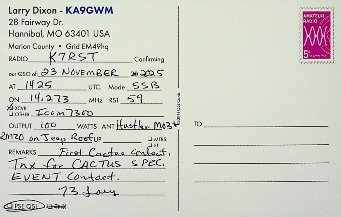 Larry Dixon - KA9GWM
28 Fairway Dr.
Hannibal, MO 63401 USA
Marion County • Grid EM49hq
RADIO K7RST Confirming
our QSO of 23 NOVEMBER 2025
AT 1425 UTC. Mode SSB
ON 14.273 MHz RST 59
XCVR
OTHER Icom 7300
OUTPUT 100 WATTS ANT Hustler
on Jeep Roof
REMARKS First Cactus contact.
Tnx for CACTUS SPEC.
EVENT Contact.
73 Larry
PSE QSL TNX
AMATEUR
RADIO
5¢
TO: